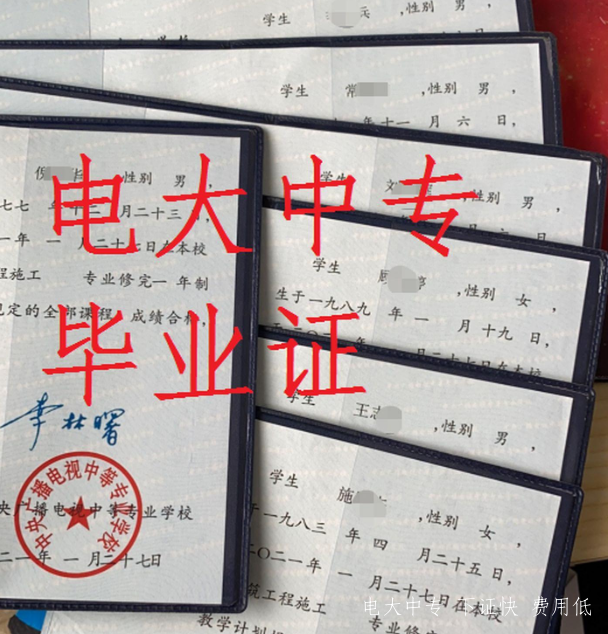 学生 兵 ,性别 男 ,
学生 常 ,性别 男 ,
年十一 月 六 日,
学生 刘 ,性别 男 ,
六 日,
,性别 男 ,
七七 年十二 月二十三
一年 一 月二十七日在本校
程施工 专业修完一 年制
规定的全部课程,成绩合格,
李林曙
中央广播电视中等专业学校
央广播电视中等专业学校
二一年 一 月二十七日
学生 顾 婷 ,性别 女 ,
生于一九八九 年 一 月十九 日,
月二十七日在本校
学生 王志 ,性别 男 ,
学生 施 ,性别 女 ,
于一九八三 年 四 月二十五日,
二〇二一年 一 月二十七日在本校
筑工程施工 专业修
教学计划
电大中专
毕业证
电大中专 下证快 费用低